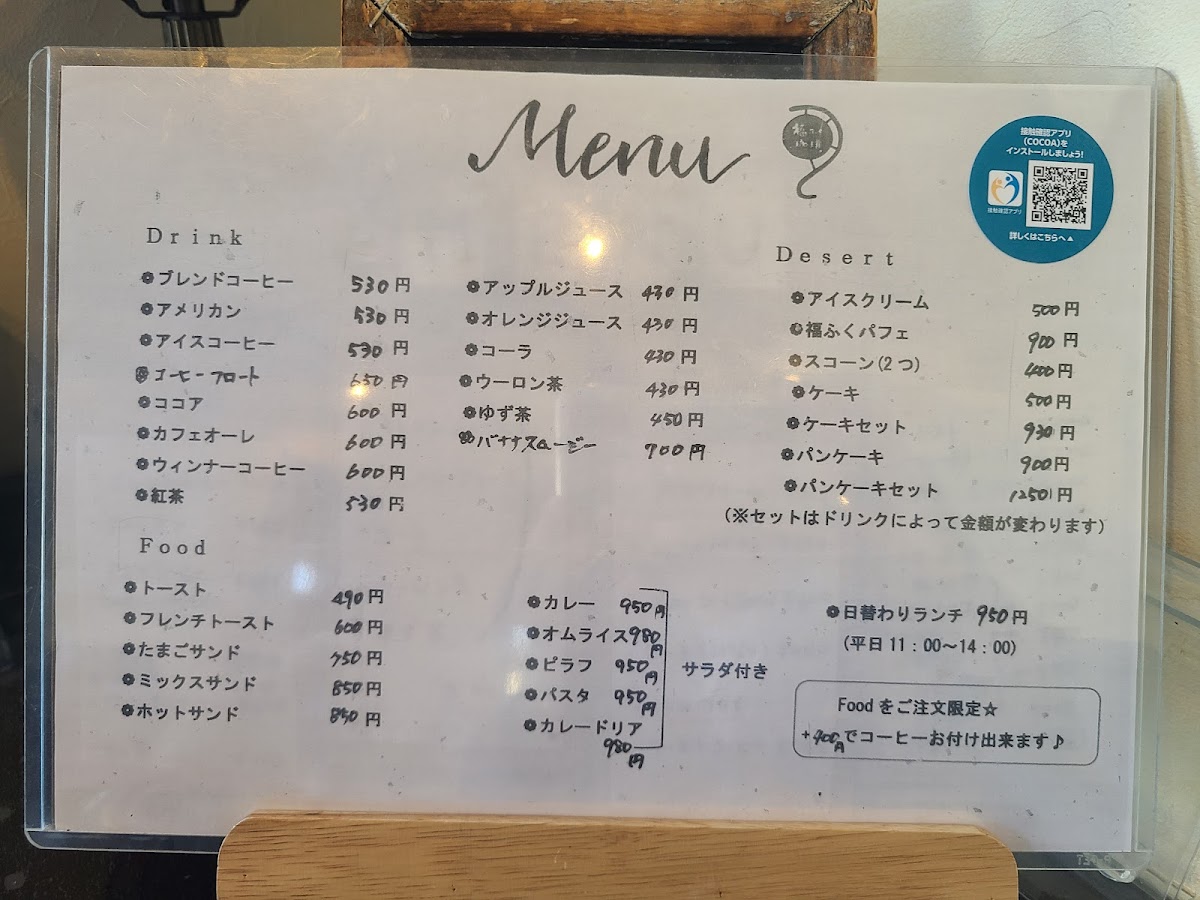 Menu
接触確認アプリ
(COCOA)を
インストールしましょう!
接触確認アプリ
詳しくはこちらへ▲
Drink
❁ブレンドコーヒー 530円
❁アメリカン 530円
❁アイスコーヒー 530円
❁コーヒーフロート 650円
❁ココア 600円
❁カフェオーレ 600円
❁ウィンナーコーヒー 600円
❁紅茶 530円
❁アップルジュース 430円
❁オレンジジュース 430円
❁コーラ 430円
❁ウーロン茶 430円
❁ゆず茶 450円
❁バナナスムージー 700円
Desert
❁アイスクリーム 500円
❁福ふくパフェ 900円
❁スコーン(2つ) 400円
❁ケーキ 500円
❁ケーキセット 930円
❁パンケーキ 900円
❁パンケーキセット 1250円
(※セットはドリンクによって金額が変わります)
Food
❁トースト 490円
❁フレンチトースト 600円
❁たまごサンド 750円
❁ミックスサンド 850円
❁ホットサンド 850円
❁カレー 950円
❁オムライス980円
❁ピラフ 950円
❁パスタ 950円
❁カレードリア
980円
サラダ付き
❁日替わりランチ 950円
(平日11:00〜14:00)
Foodをご注文限定☆
+400円でコーヒーお付け出来ます♪